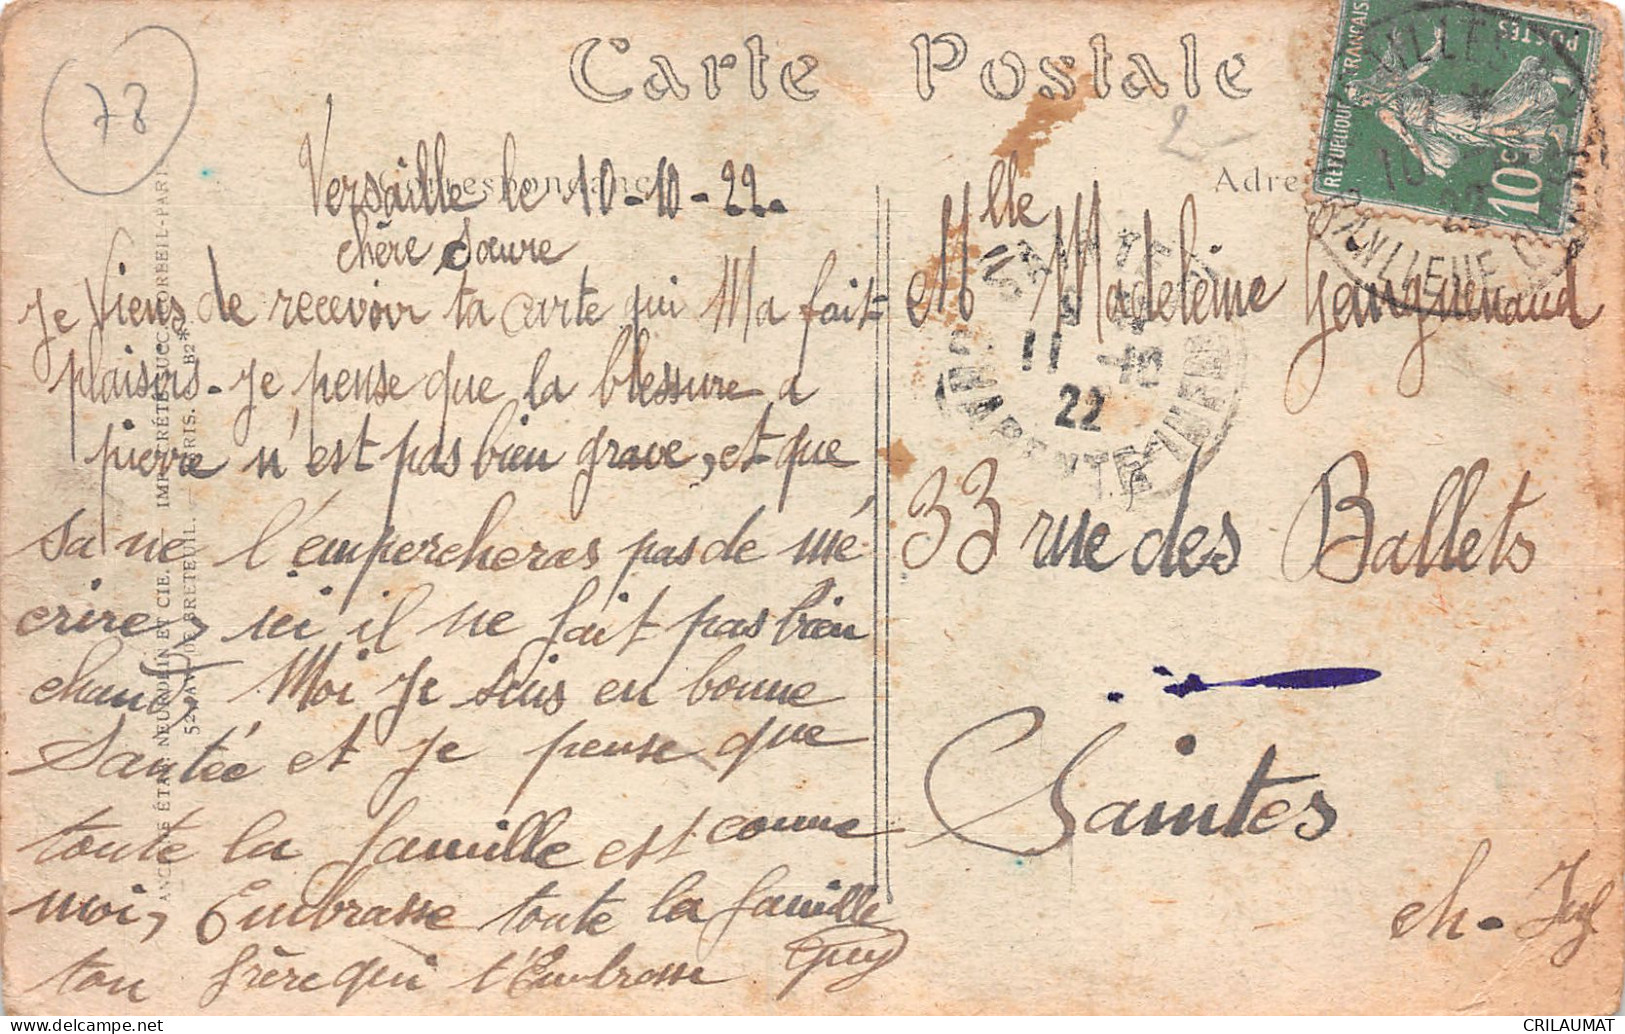 Carte Postale
78
2
Correspondance
Adre
Versaille le 10-10-22.
chère Sœure
Je Viens de recevoir ta carte qui Ma fait
plaisirs. Je pense que la blessure a
pierre n'est pas bien grave, et que
sa ne l'empercheras pas de mé
crire, ici il ne fait pas bien
chand, Moi Je suis en bonne
Santée et Je pense que
toute la famille est comme
moi, Embrasse toute la famille
ton frère qui t'Embrasse Guy
Mlle Madeleine
33 rue des Ballets
Saintes
ch-Inf
REPUBLIQUE FRANÇAISE
POSTES
10c
10
22
BANLIEUE
SAINTES
11
22
CHARENTE INFRE
ANCNS ÉTABTS NEURDEIN ET CIE. — IMP. CRÉTÉ, SUCC. CORBEIL-PARIS
52, AV. DE BRETEUIL. — PARIS. B2*
CRILAUMAT